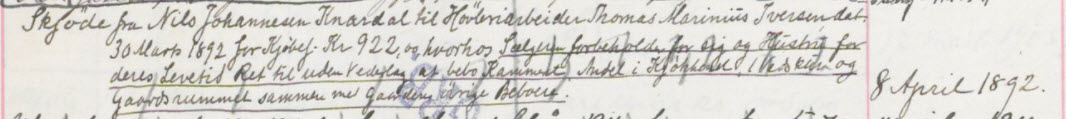 Skjøde fra Nils Johannesen Knardal til Høvleriarbeider Thomas Marinius Iversen dat.
30 Marts 1892 for Kjøbes. Kr 922, og hvorhos Sælgeren forbeholder for sig og Hustru for
deres Levetid Ret til uden Vederlag at bebo Kammerset, Andel i Kjøkkenet, Vedskur og
Gaardsrummet sammen med Gaardens øvrige Beboere.
8 April 1892.